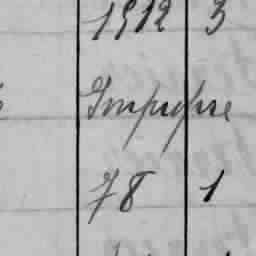 1912 3
Impropre
78 1